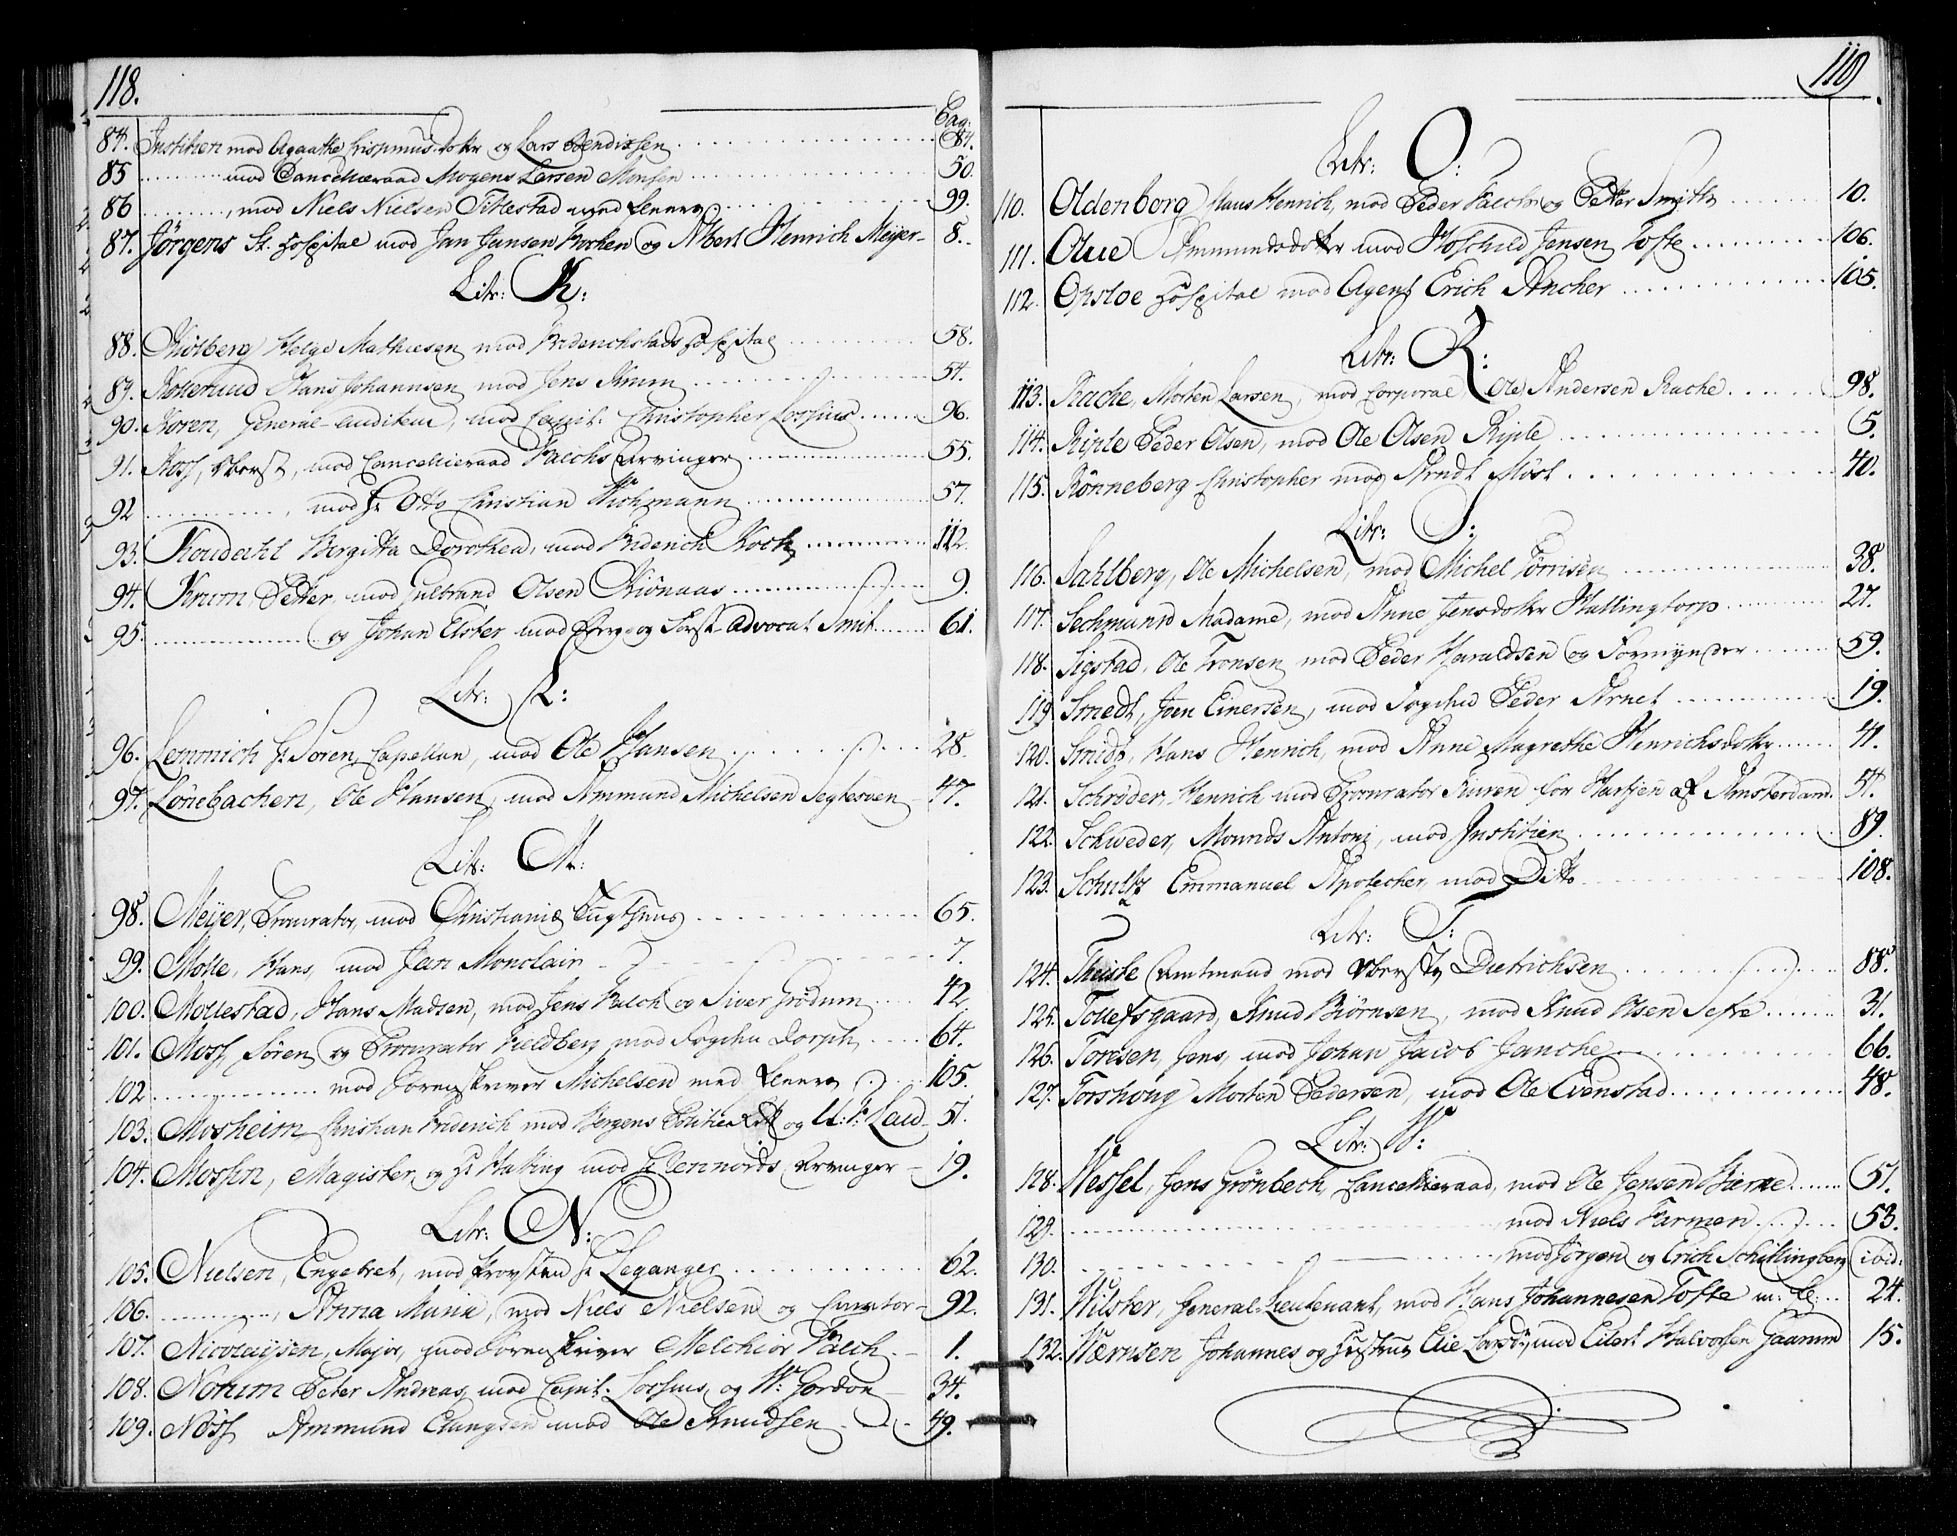 118.
Pag:
84. Justitien mod Agaathe Crispinus dotter og Lars Bendixsen 84.
85 mod Cancellieraad Mogens Larsen Monsen 50.
86 , mod Niels Nielsen Tittestad med fleere 99.
87. Jörgens St. Hospital mod Jan Jansen Kochen og Albert Henrich Meijer 8.
Litr: K:
88. Kiölberg Helge Mathiesen mod Friderichstads Hospital 58.
89. Kollerud Hans Johannsen mod Jens Krum 54.
90. Koren, General-auditeur, mod Capit: Christopher Lossius 96.
91. Koss, Oberst, mod Cancellieraad Falchs Arvinger 55.
92 , mod Hr Otto Christian Wichmann 57.
93. Koudahl Bergitta Dorothea, mod Friderich Koch 112.
94. Krum Petter mod Gulbrand Olsen Kiönaas 9.
95. og Johan Elster mod Berg- og Forst-Advocat Smit 61.
Litr: L:
96. Lemmich Hr Sören, Capellan, mod Ole Hansen 28.
97. Lönebachen, Ole Hansen, mod Ammund Michelsen Segteroen 47.
Litr: M:
98. Meijer, Procurator, mod Christianiæ Tugthuus 65.
99. Molle, Hans, mod Jan Monclair 7.
100. Mollestad, Hans Madsen, mod Jens Falch og Siver Grödum 42
101. Moss, Sören og Procurator Feldberg mod Fogden Dorph 64.
102 mod Sorenskriver Michelsen med fleere 105.
103. Mosheim Christian Friderich mod Bergens Politie Rett og U: P: Leud 51.
104. Mossin, Magister, og Hr Halling mod Hr Clennords Arvinger 19.
Litr: N:
105. Nielsen, Engebret, mod Provsten Hr Leganger 62.
106. , Anna Maria, mod Niels Nielsen og Curator 92.
107. Nicolaijsen, Major, mod Sorenskriver Melchior Falch 1.
108. Norum Peter Andreas, mod Capit. Lossius, og W: Gordon 34.
109. Nöss Ammund Elangsen mod Ole Knudsen 49.
119
Litr: O:
110. Oldenborg Hans Henrich, mod Peder Falch og Petter Smith 10.
111. Olue Ammundsdotter mod Hoschild Jensen Tofte 106.
112. Opsloe Hospital mod Agent Erich Ancher 105.
Litr: R:
113. Rache, Morten Larsen, mod Corporal Ole Andersen Rache 98.
114. Riple Peder Olsen, mod Ole Olsen Riple 5.
115. Rönneberg Christopher mod Arndt Möst 40.
Litr: S:
116. Sahlberg, Ole Michelsen, mod Michel Törrisen 38.
117. Sechmand Madame, mod Anne Jensdotter Hallingtorp 27.
118. Sigstad, Ole Tronsen mod Peder Haraldsen og Formynder 59.
119 Smedt, Joen Einersen, mod Fogden Peder Arnet 19.
120. Smidt, Hans Henrich, mod Anne Magrethe Henrichsdotter 41.
121. Schröder, Henrich mod Procurator Buren for Hartsen af Amsterdam 54.
122. Schweder, Mounds Antoni, mod Justitien 89.
123. Schultz Emmanuel Apotecher, mod Ditto 108.
Litr: T:
124. Theiste Amtmand mod Oberste Dietrichsen 88.
125. Tollefsgaard, Knud Biörnsen, mod Knud Olsen Sefve 31.
126. Toresen, Jens, mod Johan Jacob Janche 66.
127. Torshoug Morten Pedersen, mod Ole Evenstad 48.
Litr: W:
128. Wessel, Jens Grönbech, Cancellieraad, mod Ole Jensen Bierke 51.
129. mod Niels Farmen 53.
130. , mod Jörgen og Erich Schillingberg ibid:
131. Wilster, General-Lieutenant, mod Hans Johannesen Tofte m: fl: 24.
132. Wærnsen Johannes og Hustrue Elie Larsdr, mod Eilert Halvorsen Gaarum 15.